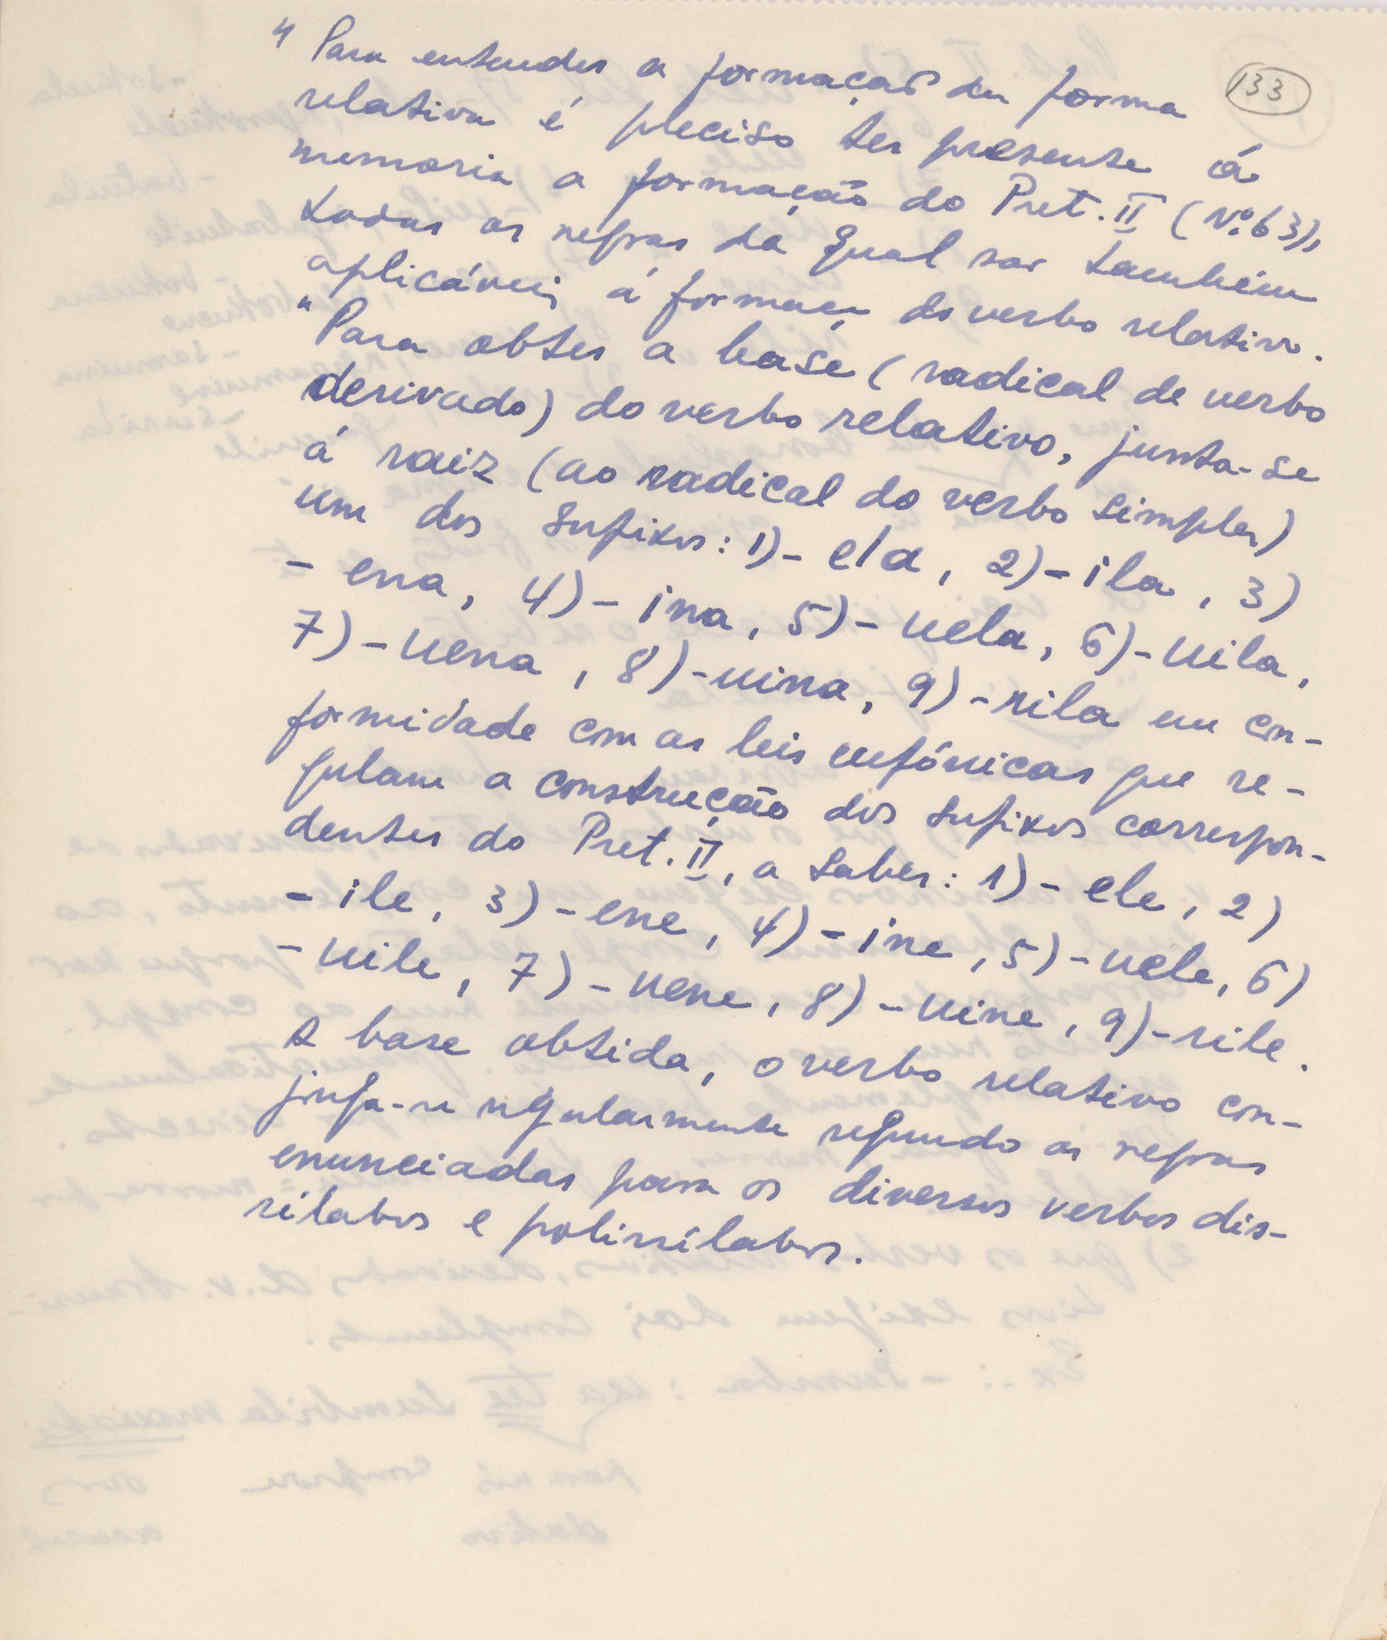 133
" Para entender a formação da forma
relativa é preciso ter presente á
memoria a formação do Pret. II (Nº 63),
todas as regras da qual sao também
aplicáveis á formaç. do verbo relativo.
" Para obter a base (radical de verbo
derivado) do verbo relativo, junta-se
á raiz (ao radical do verbo simples)
um dos sufixos: 1) - ela, 2) - ila, 3)
- ena, 4) - ina, 5) - uela, 6) - uila,
7) - uena, 8) - uina, 9) - rila em con-
formidade com as leis eufónicas que re-
gulam a construção dos sufixos correspon-
dentes do Pret. II, a saber: 1) - ele, 2)
- ile, 3) - ene, 4) - ine, 5) - uele, 6)
- uile, 7) - uene, 8) - uine, 9) - rile.
A base obtida, o verbo relativo con-
juga-se regularmente segundo as regras
enunciadas para os diversos verbos dis-
sílabos e polissílabos.